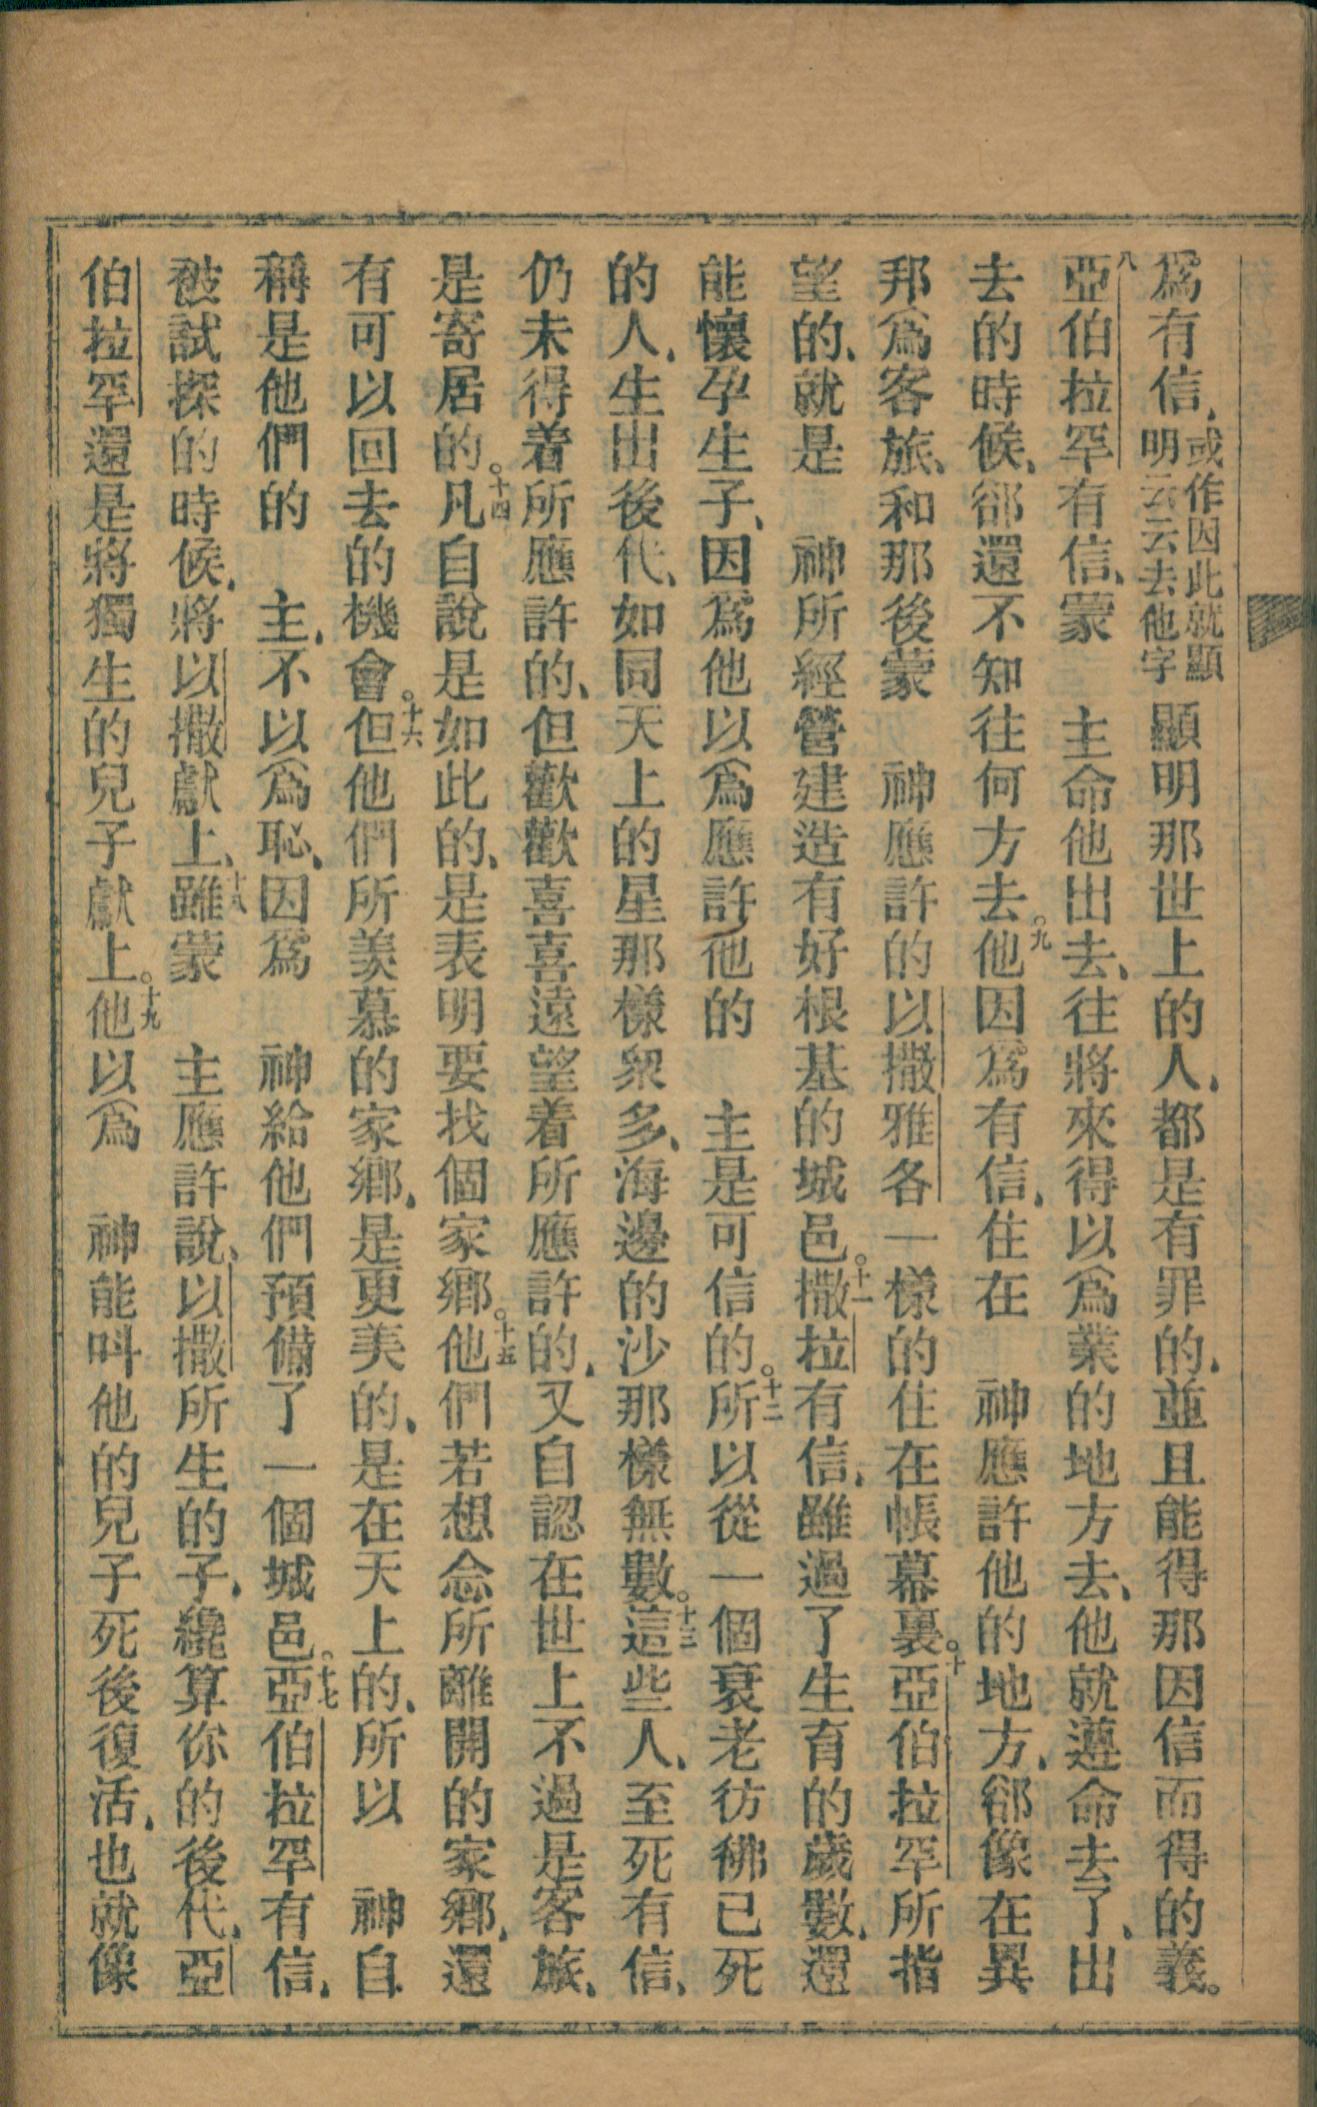 爲有信、或作因此就顯明云云去他字顯明那世上的人、都是有罪的、並且能得那因信而得的義。
八亞伯拉罕有信、蒙　主命他出去、往將來得以爲業的地方去、他就遵命去了、出
去的時候、郤還不知往何方去。九他因爲有信、住在　神應許他的地方、郤像在異
邦爲客旅、和那後蒙　神應許的以撒雅各一樣的住在帳幕裏。十亞伯拉罕所指
望的、就是　神所經營建造有好根基的城邑。十一撒拉有信、雖過了生育的歲數、還
能懷孕生子、因爲他以爲應許他的　主是可信的。十二所以從一個衰老彷彿已死
的人、生出後代、如同天上的星那樣衆多、海邊的沙那樣無數。十三這些人、至死有信、
仍未得着所應許的、但歡歡喜喜遠望着所應許的、又自認在世上不過是客旅、
是寄居的。十四凡自說是如此的、是表明要找個家鄉。十五他們若想念所離開的家鄉、還
有可以回去的機會。十六但他們所羨慕的家鄉、是更美的、是在天上的、所以　神自
稱是他們的　主、不以爲恥、因爲　神給他們預備了一個城邑。十七亞伯拉罕有信、
被試探的時候、將以撒獻上、十八雖蒙　主應許說、以撒所生的子、纔算你的後代、亞
伯拉罕還是將獨生的兒子獻上。十九他以爲　神能呌他的兒子死後復活、也就像